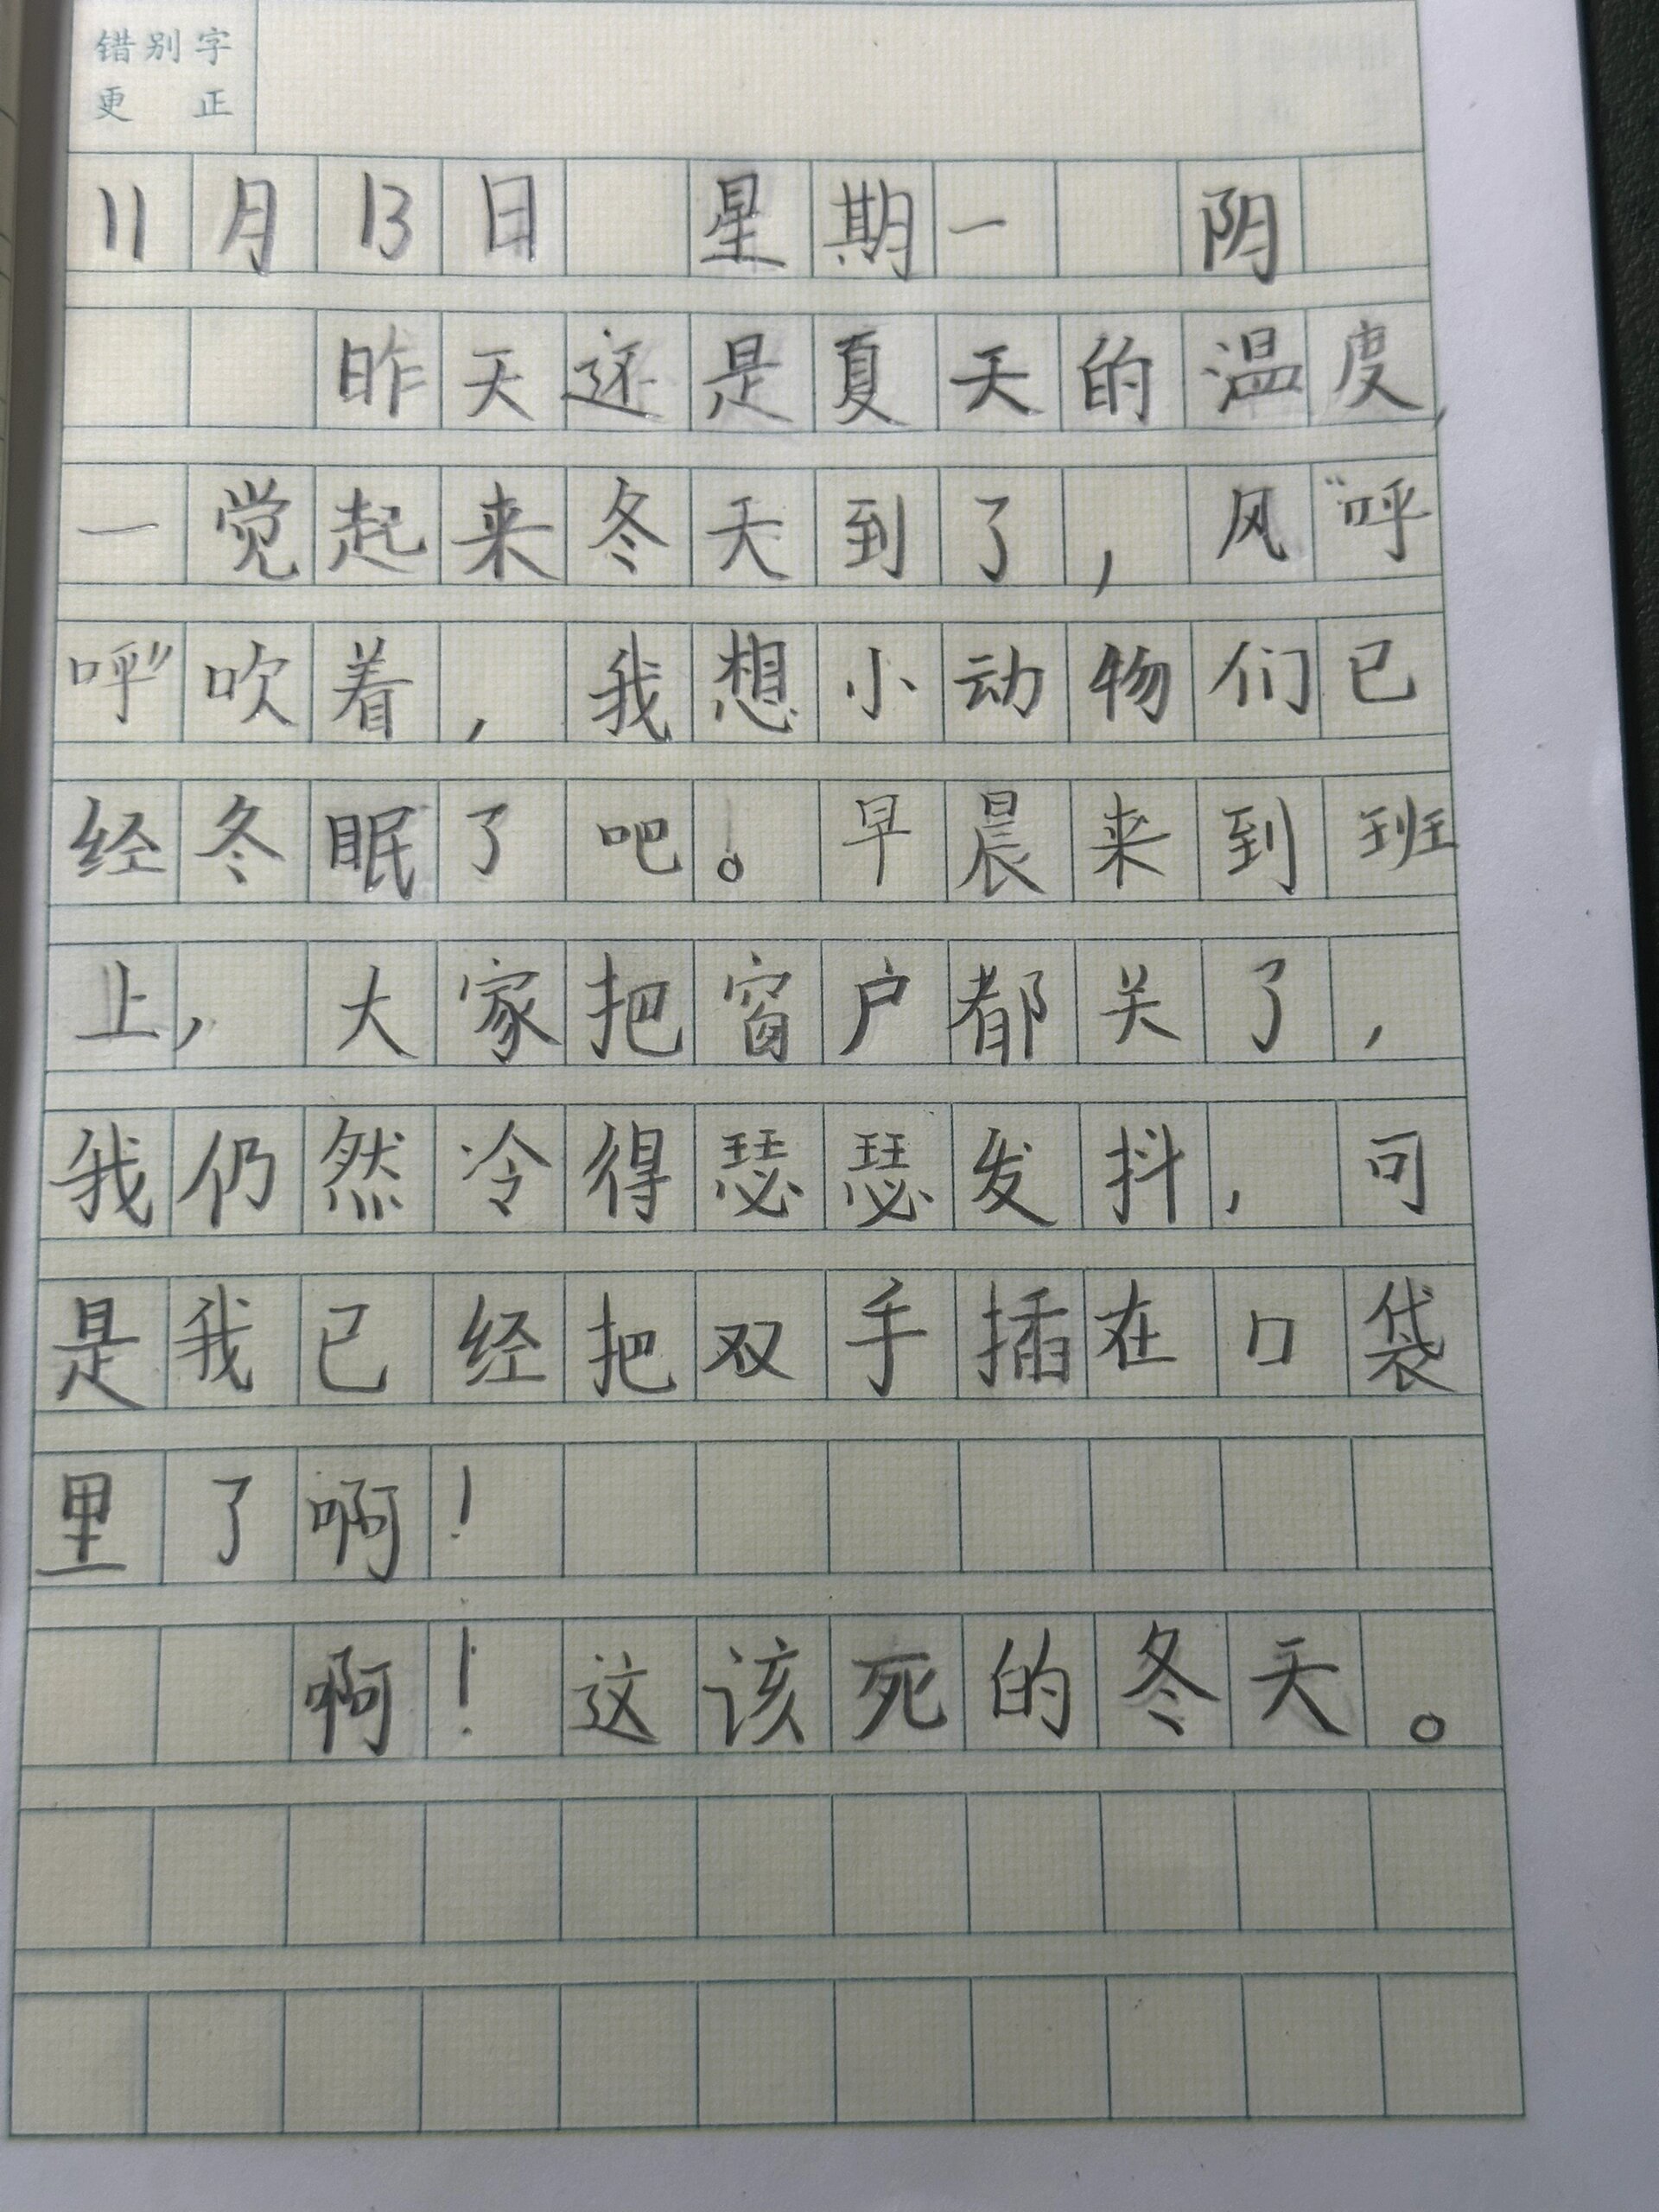 错别字
更正
11月13日 星期一 阴
昨天还是夏天的温度,
一觉起来冬天到了,风“呼
呼”吹着,我想小动物们已
经冬眠了吧。早晨来到班
上,大家把窗户都关了,
我仍然冷得瑟瑟发抖,可
是我已经把双手插在口袋
里了啊!
啊!这该死的冬天。